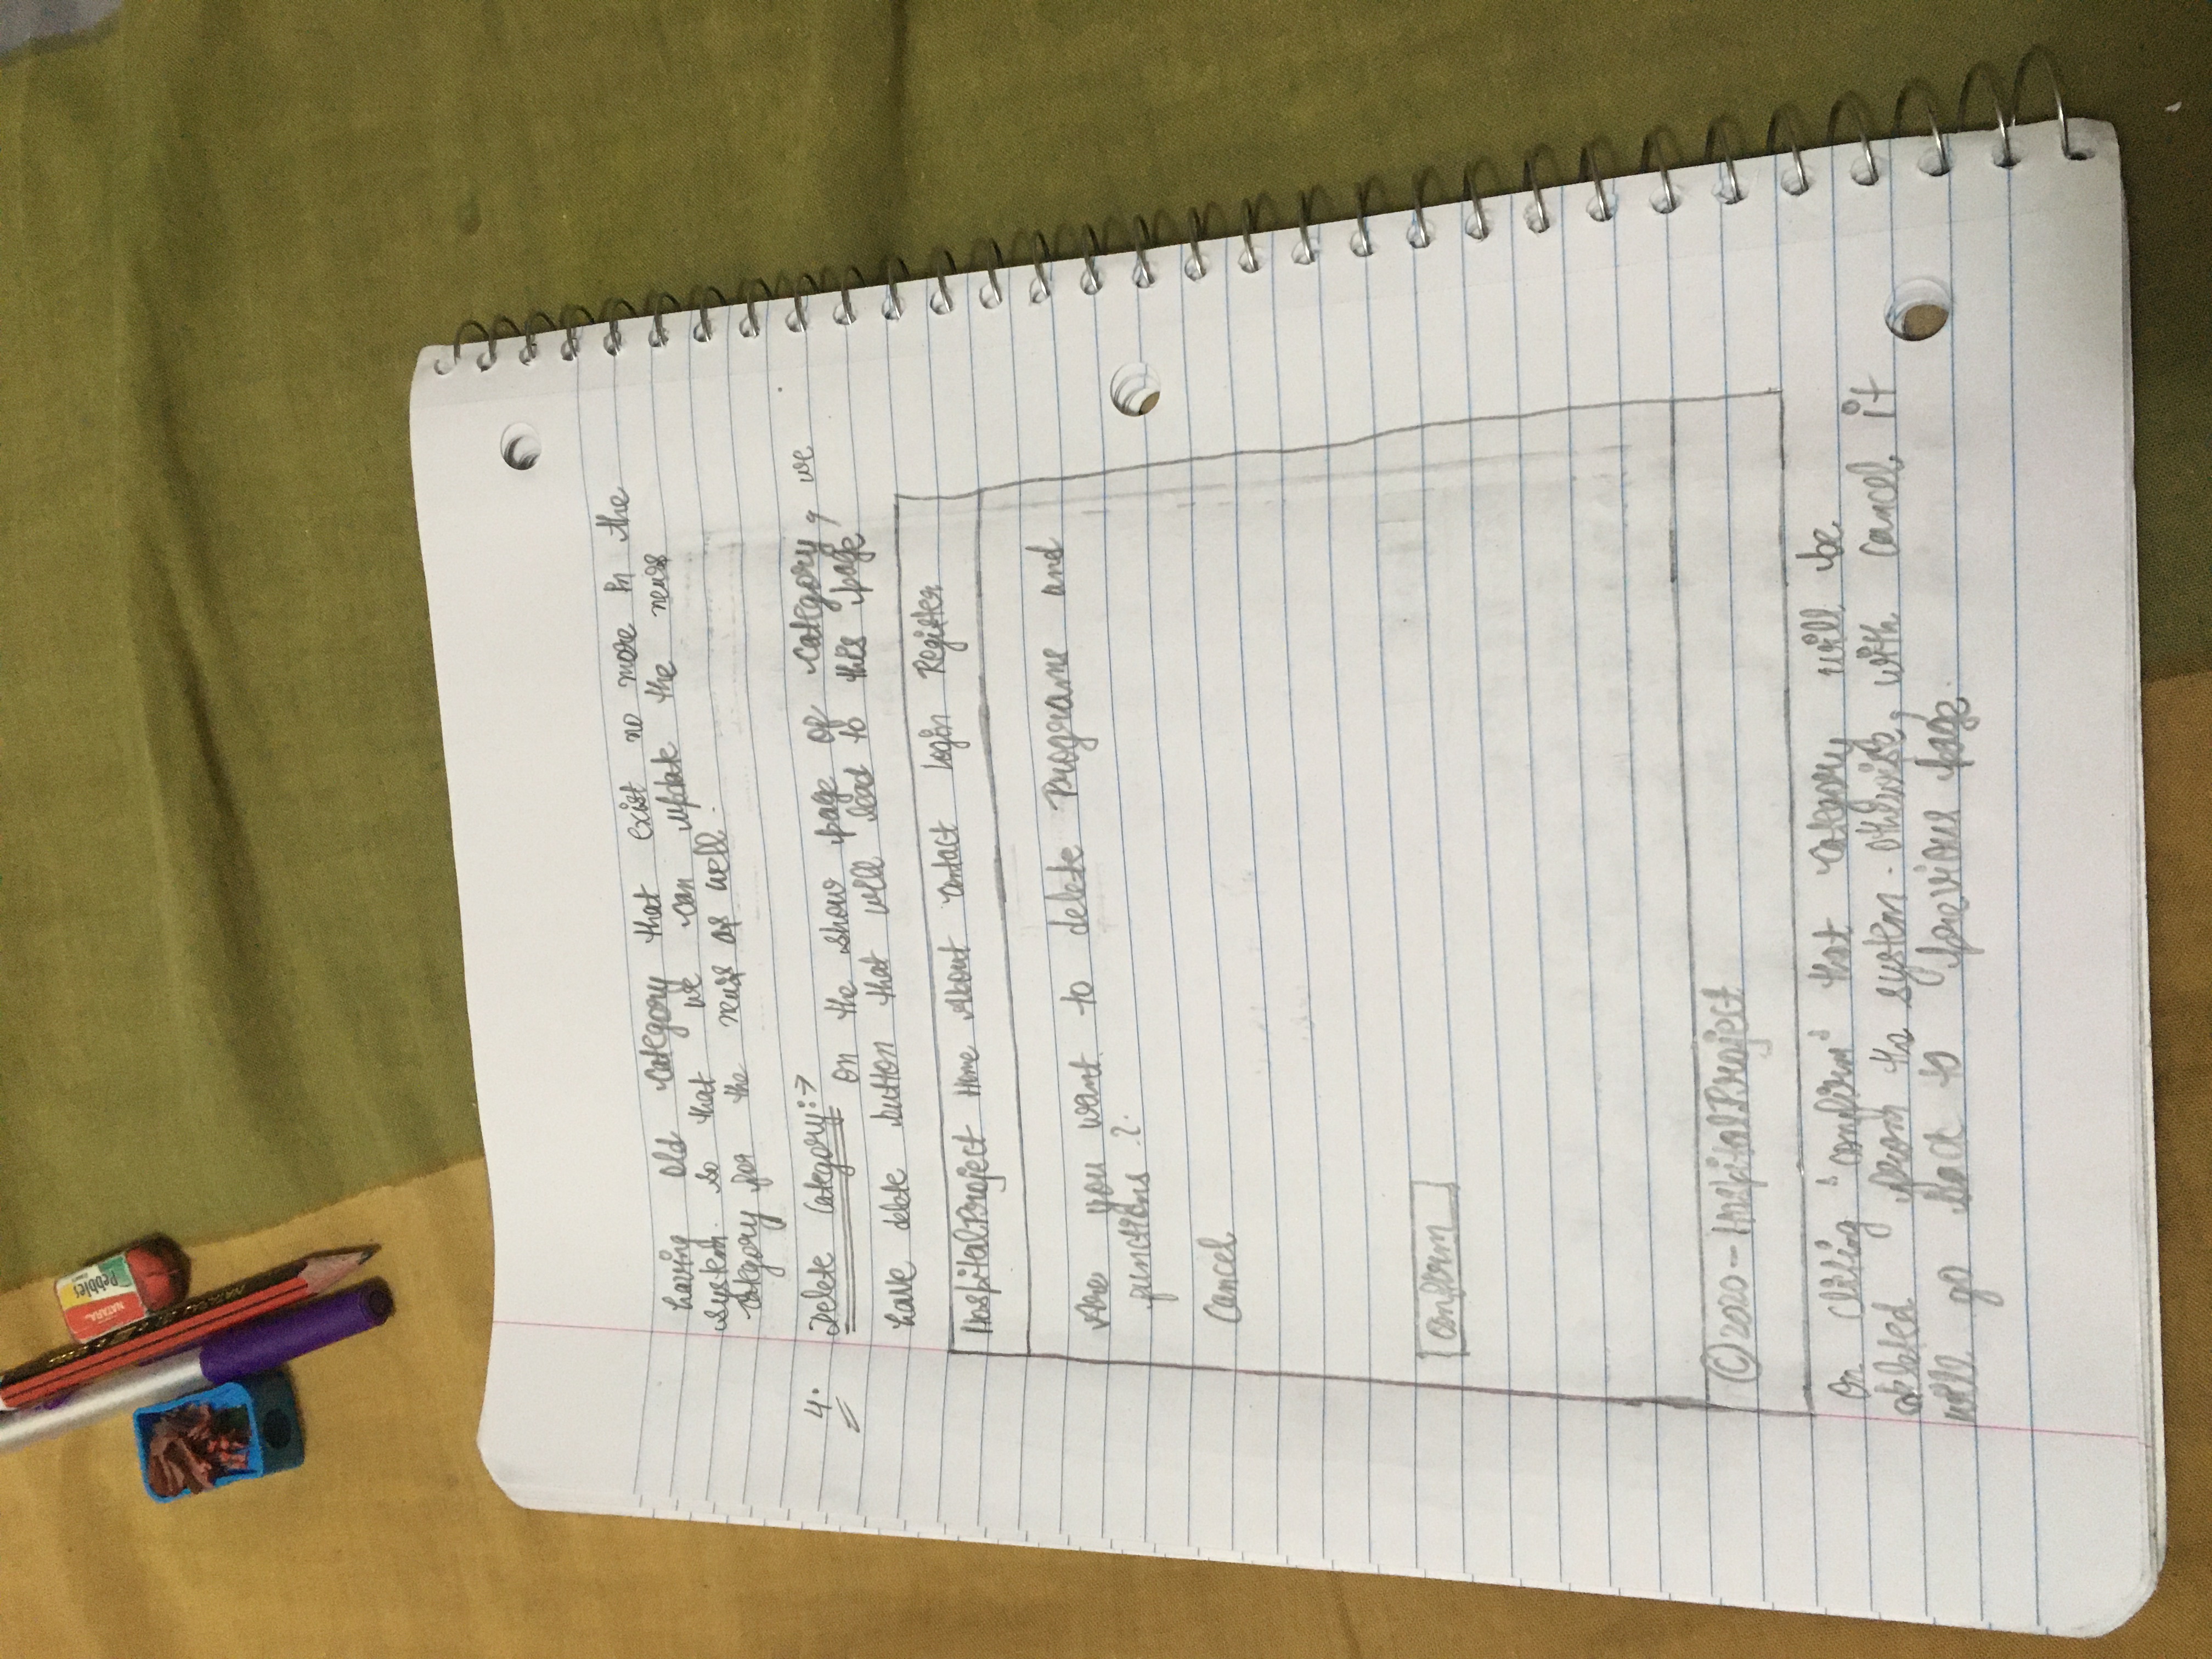 NATARAJ
Pebbles
having old category that exist no more in the
system. so that we can update the news
category for the news as well.
4. Delete Category:→
on the show page of category, we
have delete button that will lead to this page
HospitalProject Home About Contact Login Register
Are you want to delete Programs and
functions?
Cancel
Confirm
©2020 - HospitalProject
On cliting "confirm" that category will be
deleted from the system. Otherwise, with cancel it
will go back to previous page.